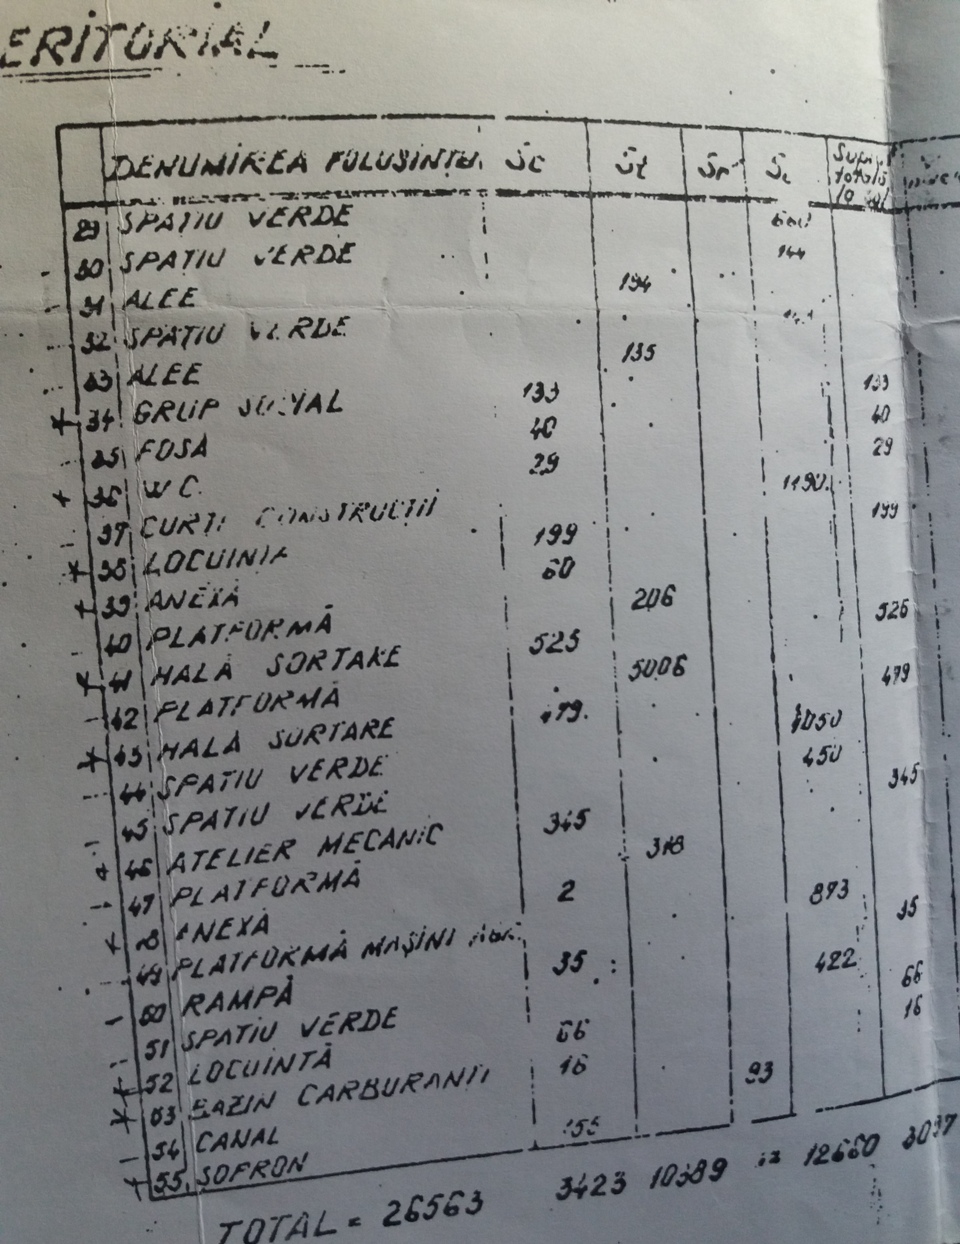 ERITORIAL
DENUMIREA FOLOSINTEI Sc St Sr Si Supr. totală
29 SPAȚIU VERDE
30 SPAȚIU VERDE 144
31 ALEE 194
32 SPAȚIU VERDE
33 ALEE 135
34 GRUP SOCIAL 133 133
35 FOSA 40 40
36 WC. 29 29
37 CURȚI CONSTRUCȚII 1190
38 LOCUINȚA 199 199
39 ANEXĂ 60
40 PLATFORMĂ 206
41 HALĂ SORTARE 525 525
42 PLATFORMĂ 5006
43 HALĂ SORTARE 479 479
44 SPAȚIU VERDE 1050
45 SPAȚIU VERDE 450
46 ATELIER MECANIC 345 345
47 PLATFORMĂ 318
48 ANEXĂ 2
49 PLATFORMĂ MAȘINI AGR. 873
50 RAMPĂ 35 35
51 SPAȚIU VERDE 422
52 LOCUINȚĂ 66 66
53 BAZIN CARBURANȚI 16 16
54 CANAL 93
55 SOPRON 155
TOTAL = 26563 3423 10389 12660 3097